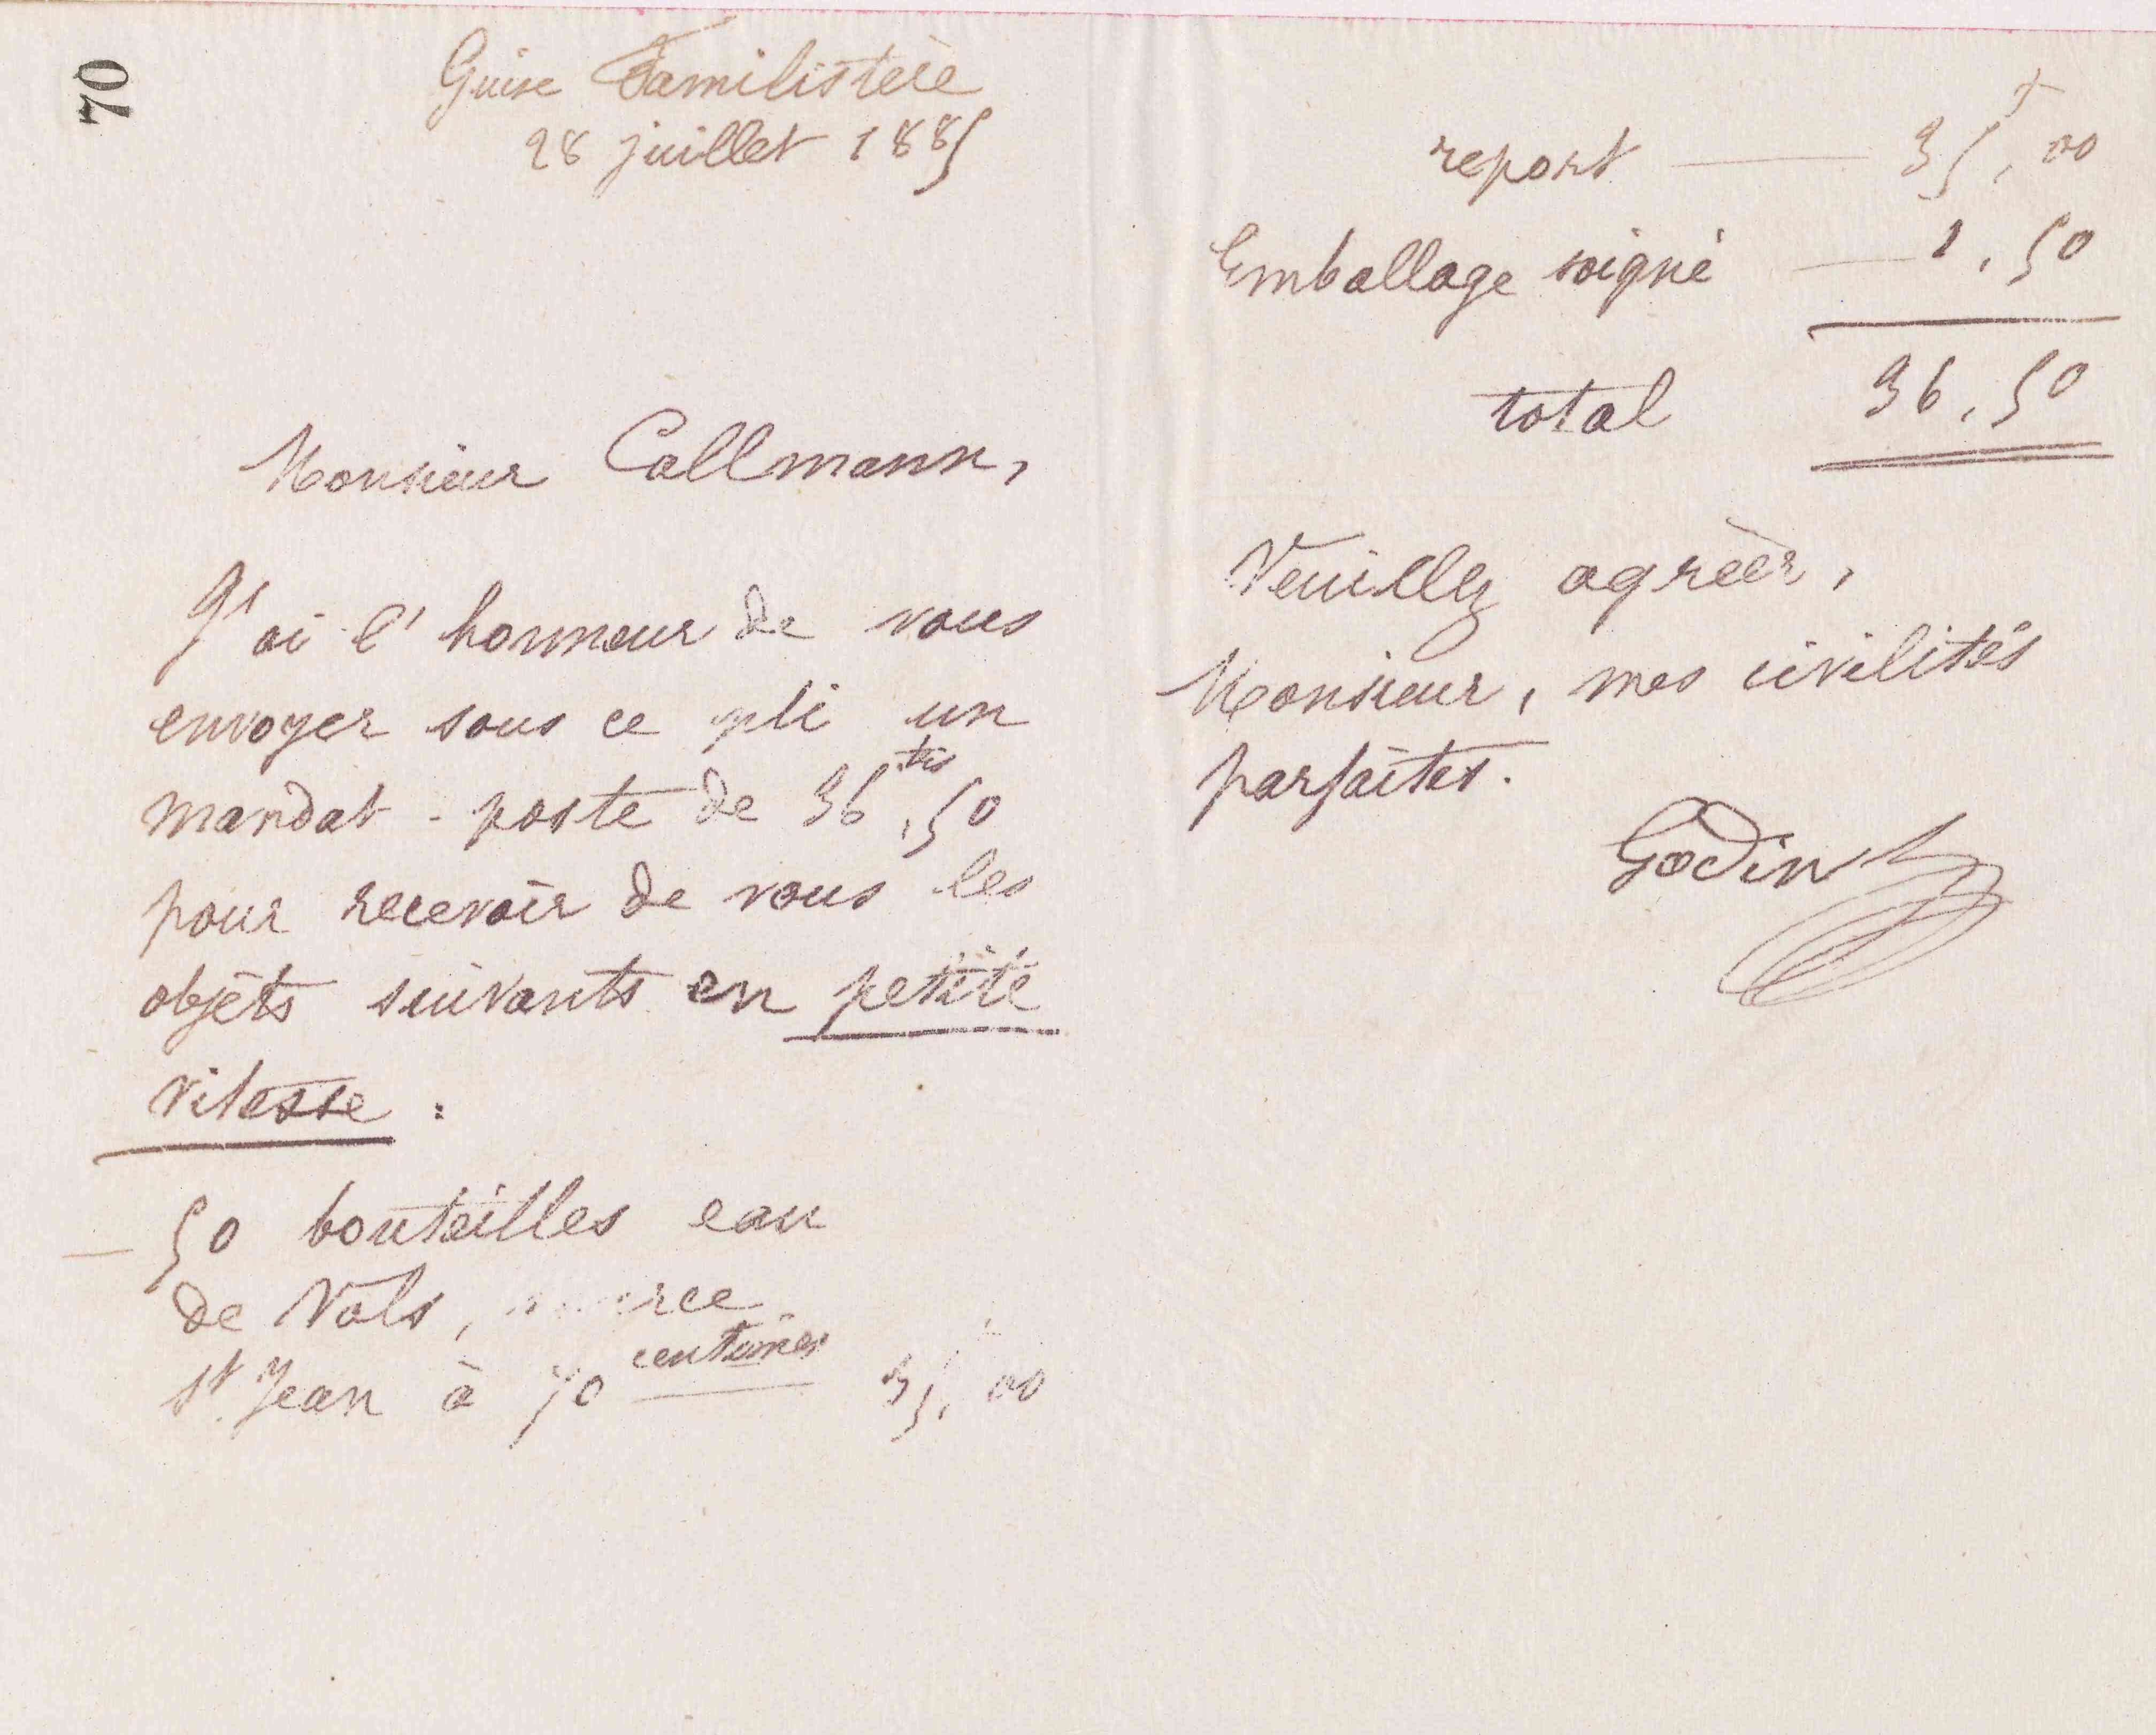 70
Guise Familistère
28 juillet 1885
Monsieur Collmann,
J'ai l'honneur de vous
envoyer sous ce pli un
mandat-poste de 36 fcs,50
pour recevoir de vous les
objets suivants en petite
vitesse :
— 50 bouteilles eau
de Vals,
St Jean à 70 centimes 35,00
report — 35f,00
Emballage soigné — 1,50
total 36,50
Veuillez agréer,
Monsieur, mes civilités
parfaites.
Godin